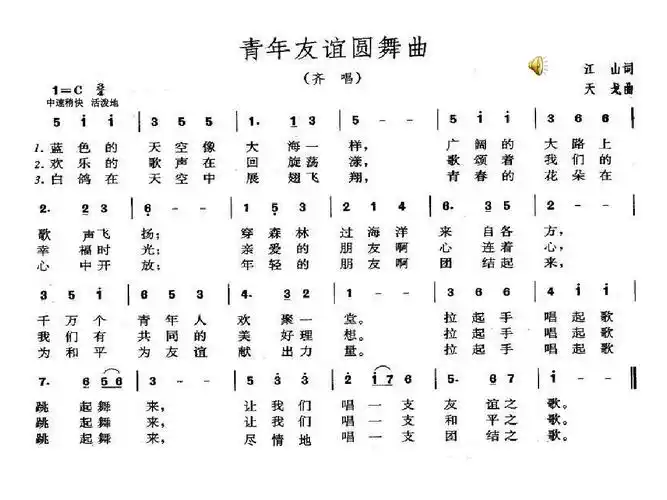 青年友谊圆舞曲
(齐唱)
江山词
天戈曲
1=C 3/4
中速稍快 活泼地
5 i i | 3 5 5 | 1. i 3 | 5 - - | 5 i i | 3 6 6 |
1. 蓝色的 天空像 大海一样, 广阔的 大路上
2. 欢乐的 歌声在 回旋荡漾, 歌颂着 我们的
3. 白鸽在 天空中 展翅飞翔, 青春的 花朵在
2. 2 3 | 6 - - | 1 5 3 | 1 7 6 | 6. 3 5 | 2 - - |
歌声飞扬; 穿森林 过海洋 来自各方,
幸福时光; 亲爱的 朋友啊 心连着心,
心中开放; 年轻的 朋友啊 团结起来,
3 5 i | 6 5 3 | 4. 3 2 | 1 - - | 3 6 6 | 4 i i |
千万个 青年人 欢聚一堂。 拉起手 唱起歌
我们有 共同的 美好理想。 拉起手 唱起歌
为和平 为友谊 献出力量。 拉起手 唱起歌
7. 6 5 6 | 3 - - | 5 3 3 | 2 i 7 6 | 5. 6 7 | i - - ‖
跳起舞来, 让我们 唱一支 友谊之歌。
跳起舞来, 让我们 唱一支 和平之歌。
跳起舞来, 尽情地 唱一支 团结之歌。